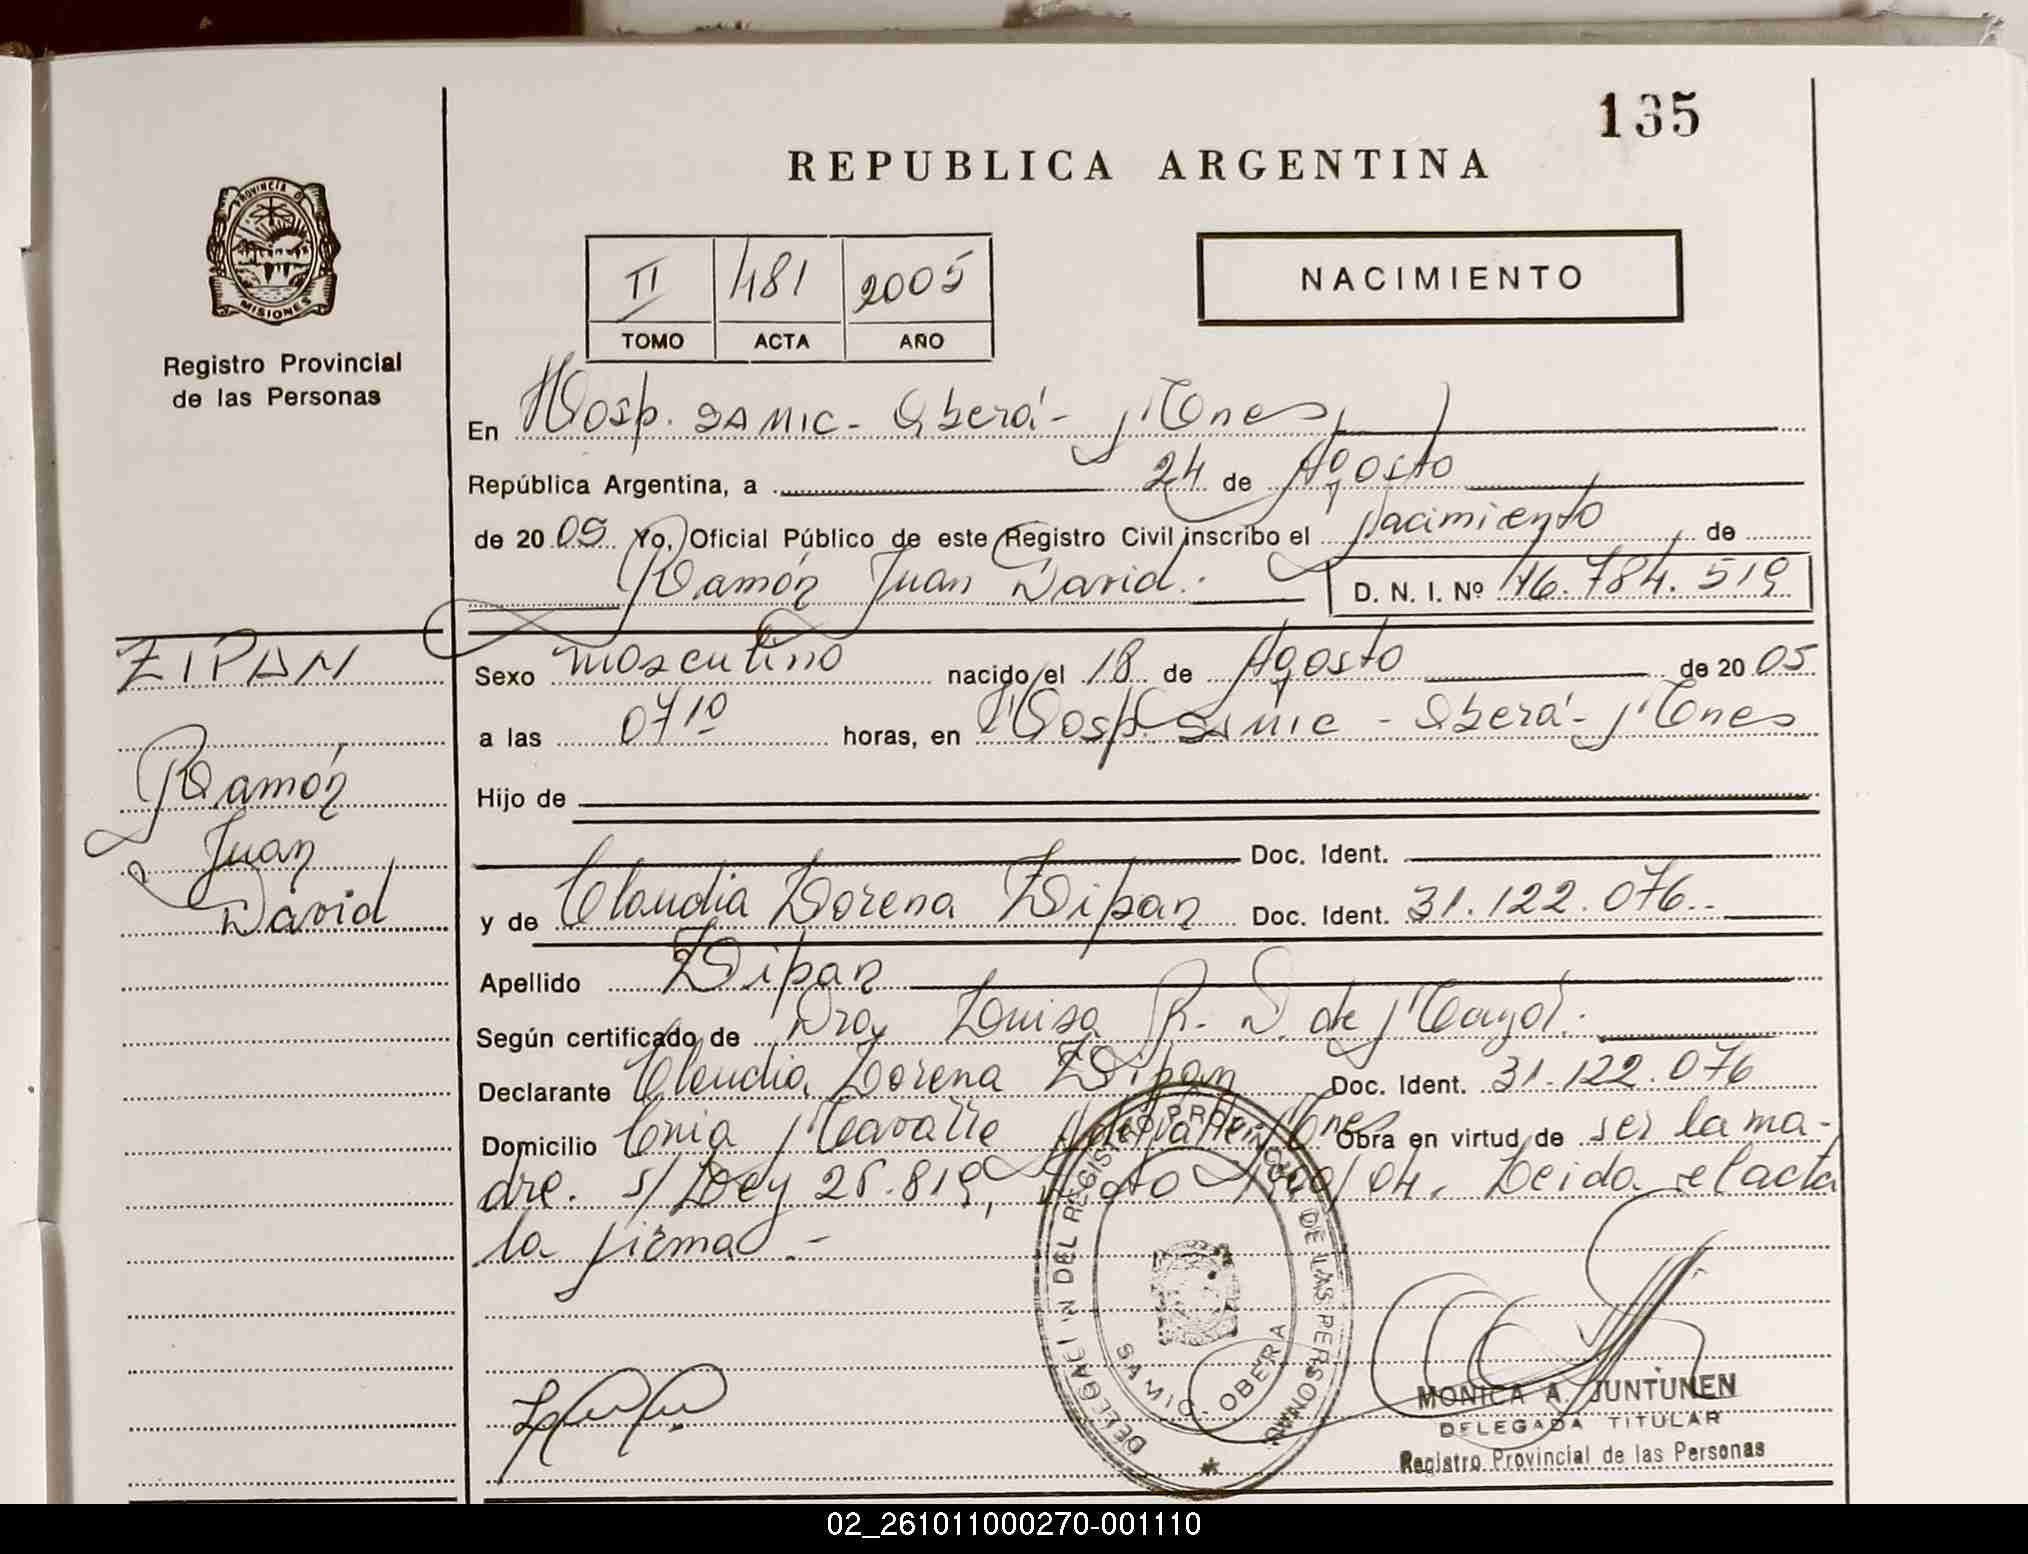 135
REPUBLICA ARGENTINA
PROVINCIA DE
MISIONES
Registro Provincial
de las Personas
II 481 2005
TOMO ACTA AÑO
NACIMIENTO
En Hosp. SAMIC - Oberá - Mnes
República Argentina, a 24 de Agosto
de 20 05 Yo, Oficial Público de este Registro Civil inscribo el Nacimiento de
Ramón Juan David. D. N. I. Nº 46.784.519
ZIPAN
Sexo masculino nacido el 18 de Agosto de 20 05
a las 07 10 horas, en Hosp. SAMIC - Oberá - Mnes
Ramón
Juan
David
Hijo de
Doc. Ident.
y de Claudia Lorena Zipan Doc. Ident. 31.122.076.-
Apellido Zipan
Según certificado de Dra Luisa R. D. de
Declarante Claudia Lorena Zipan Doc. Ident. 31.122.076
Domicilio Mnes Obra en virtud de ser la ma-
dre. s/ Ley 25.819, Dto /04. Leida el acta
la firma.-
DEL REGISTRO PROVINCIAL DE LAS PERSONAS
SAMIC - OBERA
MONICA A. JUNTUNEN
DELEGADA TITULAR
Registro Provincial de las Personas
02_261011000270-001110